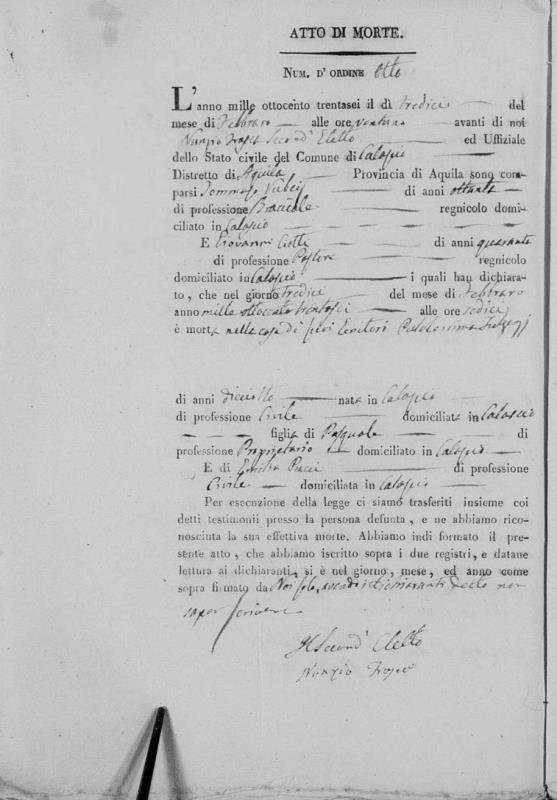 ATTO DI MORTE.
NUM. D' ORDINE Otto
L'anno mille ottocento trentasei il dì tredici del
mese di Febbraro alle ore ventuna avanti di noi
Nunzio Second' Eletto ed Uffiziale
dello Stato civile del Comune di Calascio
Distretto di Aquila Provincia di Aquila sono com-
parsi Tommaso di anni ottanta
di professione Bracciale regnicolo domi-
ciliato in Calascio
E Giovanni Ciotti di anni quaranta
di professione Pastore regnicolo
domiciliato in Calascio i quali han dichiara-
to, che nel giorno tredici del mese di Febbraro
anno mille ottocento trentasei alle ore sedici
è morta nella casa de' suoi Genitori
di anni diciotto nata in Calascio
di professione Civile domiciliata in Calascio
figlia di Pasquale di
professione Proprietario domiciliato in Calascio
E di Emilia Pacci di professione
Civile domiciliata in Calascio
Per esecuzione della legge ci siamo trasferiti insieme coi
detti testimonii presso la persona defunta, e ne abbiamo rico-
nosciuta la sua effettiva morte. Abbiamo indi formato il pre-
sente atto, che abbiamo iscritto sopra i due registri, e datane
lettura ai dichiaranti, si è nel giorno, mese, ed anno come
sopra firmato da Noi solo, avendo i Dichiaranti detto non
saper scrivere
Il Second' Eletto
Nunzio